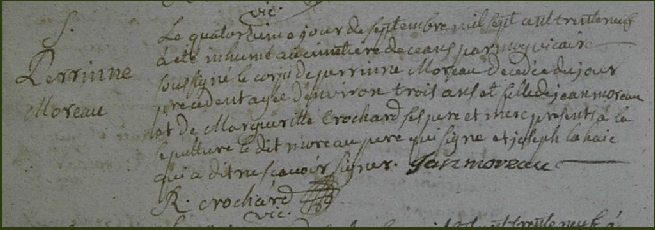 vic.
S.
Perrinne
Moreau
Le quatorzieme jour de septembre mil sept cent trente neuf
a été inhumé au cimetiere de ceans par moy vicaire
soussigné le corps de perrinne Moreau decedée du jour
precedent agée d'environ trois ans et fille de jean moreau
et de Margueritte Crochard ses pere et mere presents à la
sepulture le dit moreau pere qui signe et joseph la haie
qui a dit ne scavoir signer. jean moreau
R. crochard
vic.